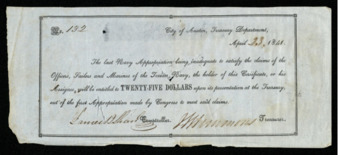 No. 132
City of Austin, Treasury Department,
April 23, 1841
The last Navy Appropriation being inadequate to satisfy the claims of the
Officers, Sailors and Marines of the Texian Navy, the holder of this Certificate, or his
Assignee, will be entitled to TWENTY-FIVE DOLLARS upon its presentation at the Treasury,
out of the first Appropriation made by Congress to meet said claims.
Comptroller. Treasurer.